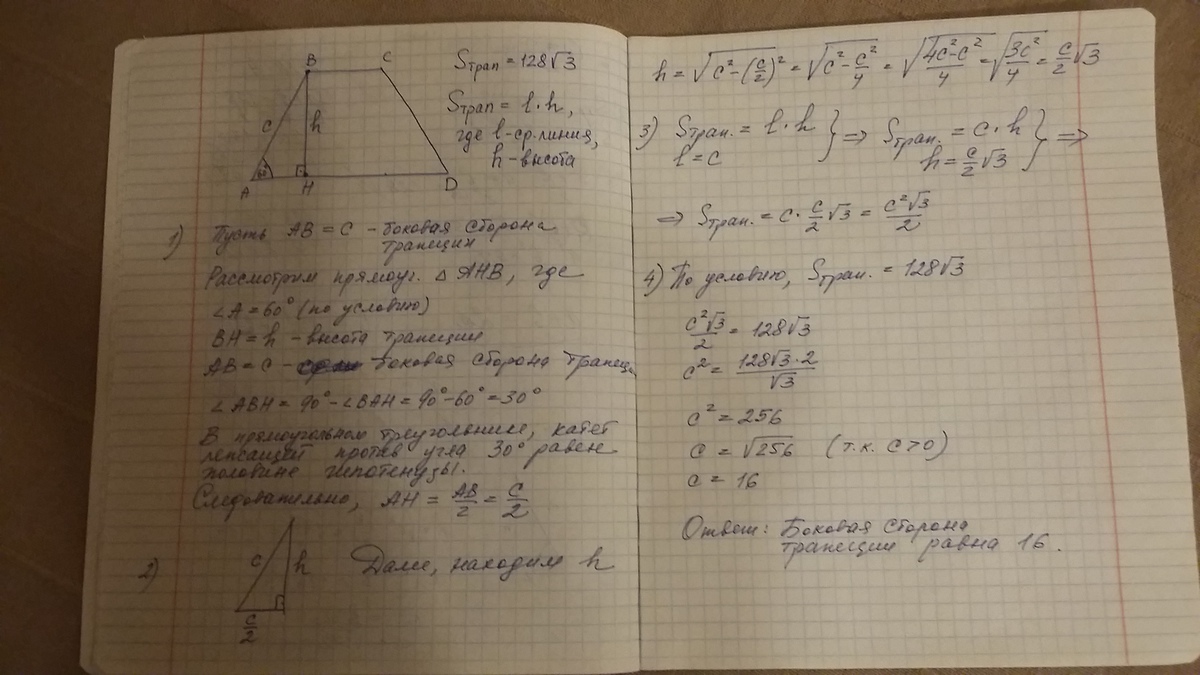 B C
c h
60°
A H D
Sтрап = 128√3
Sтрап = l · h,
где l - ср. линия,
h - высота
1) Пусть AB = c - боковая сторона
трапеции
Рассмотрим прямоуг. △ AHB, где
∠A = 60° (по условию)
BH = h - высота трапеции
AB = c - боковая сторона трапеции
∠ABH = 90° - ∠BAH = 90° - 60° = 30°
В прямоугольном треугольнике, катет
лежащий против угла 30° равен
половине гипотенузы.
Следовательно, AH = AB/2 = c/2
2) c h Далее, находим h
c/2
h = √(c² - (c/2)²) = √(c² - c²/4) = √((4c² - c²)/4) = √(3c²/4) = c/2 √3
3) Sтрап. = l · h } ⇒ Sтрап. = c · h } ⇒
l = c h = c/2 √3
⇒ Sтрап. = c · c/2 √3 = c²√3/2
4) По условию, Sтрап. = 128√3
c²√3/2 = 128√3
c² = 128√3 · 2/√3
c² = 256
c = √256 (т.к. c > 0)
c = 16
Ответ: Боковая сторона
трапеции равна 16.